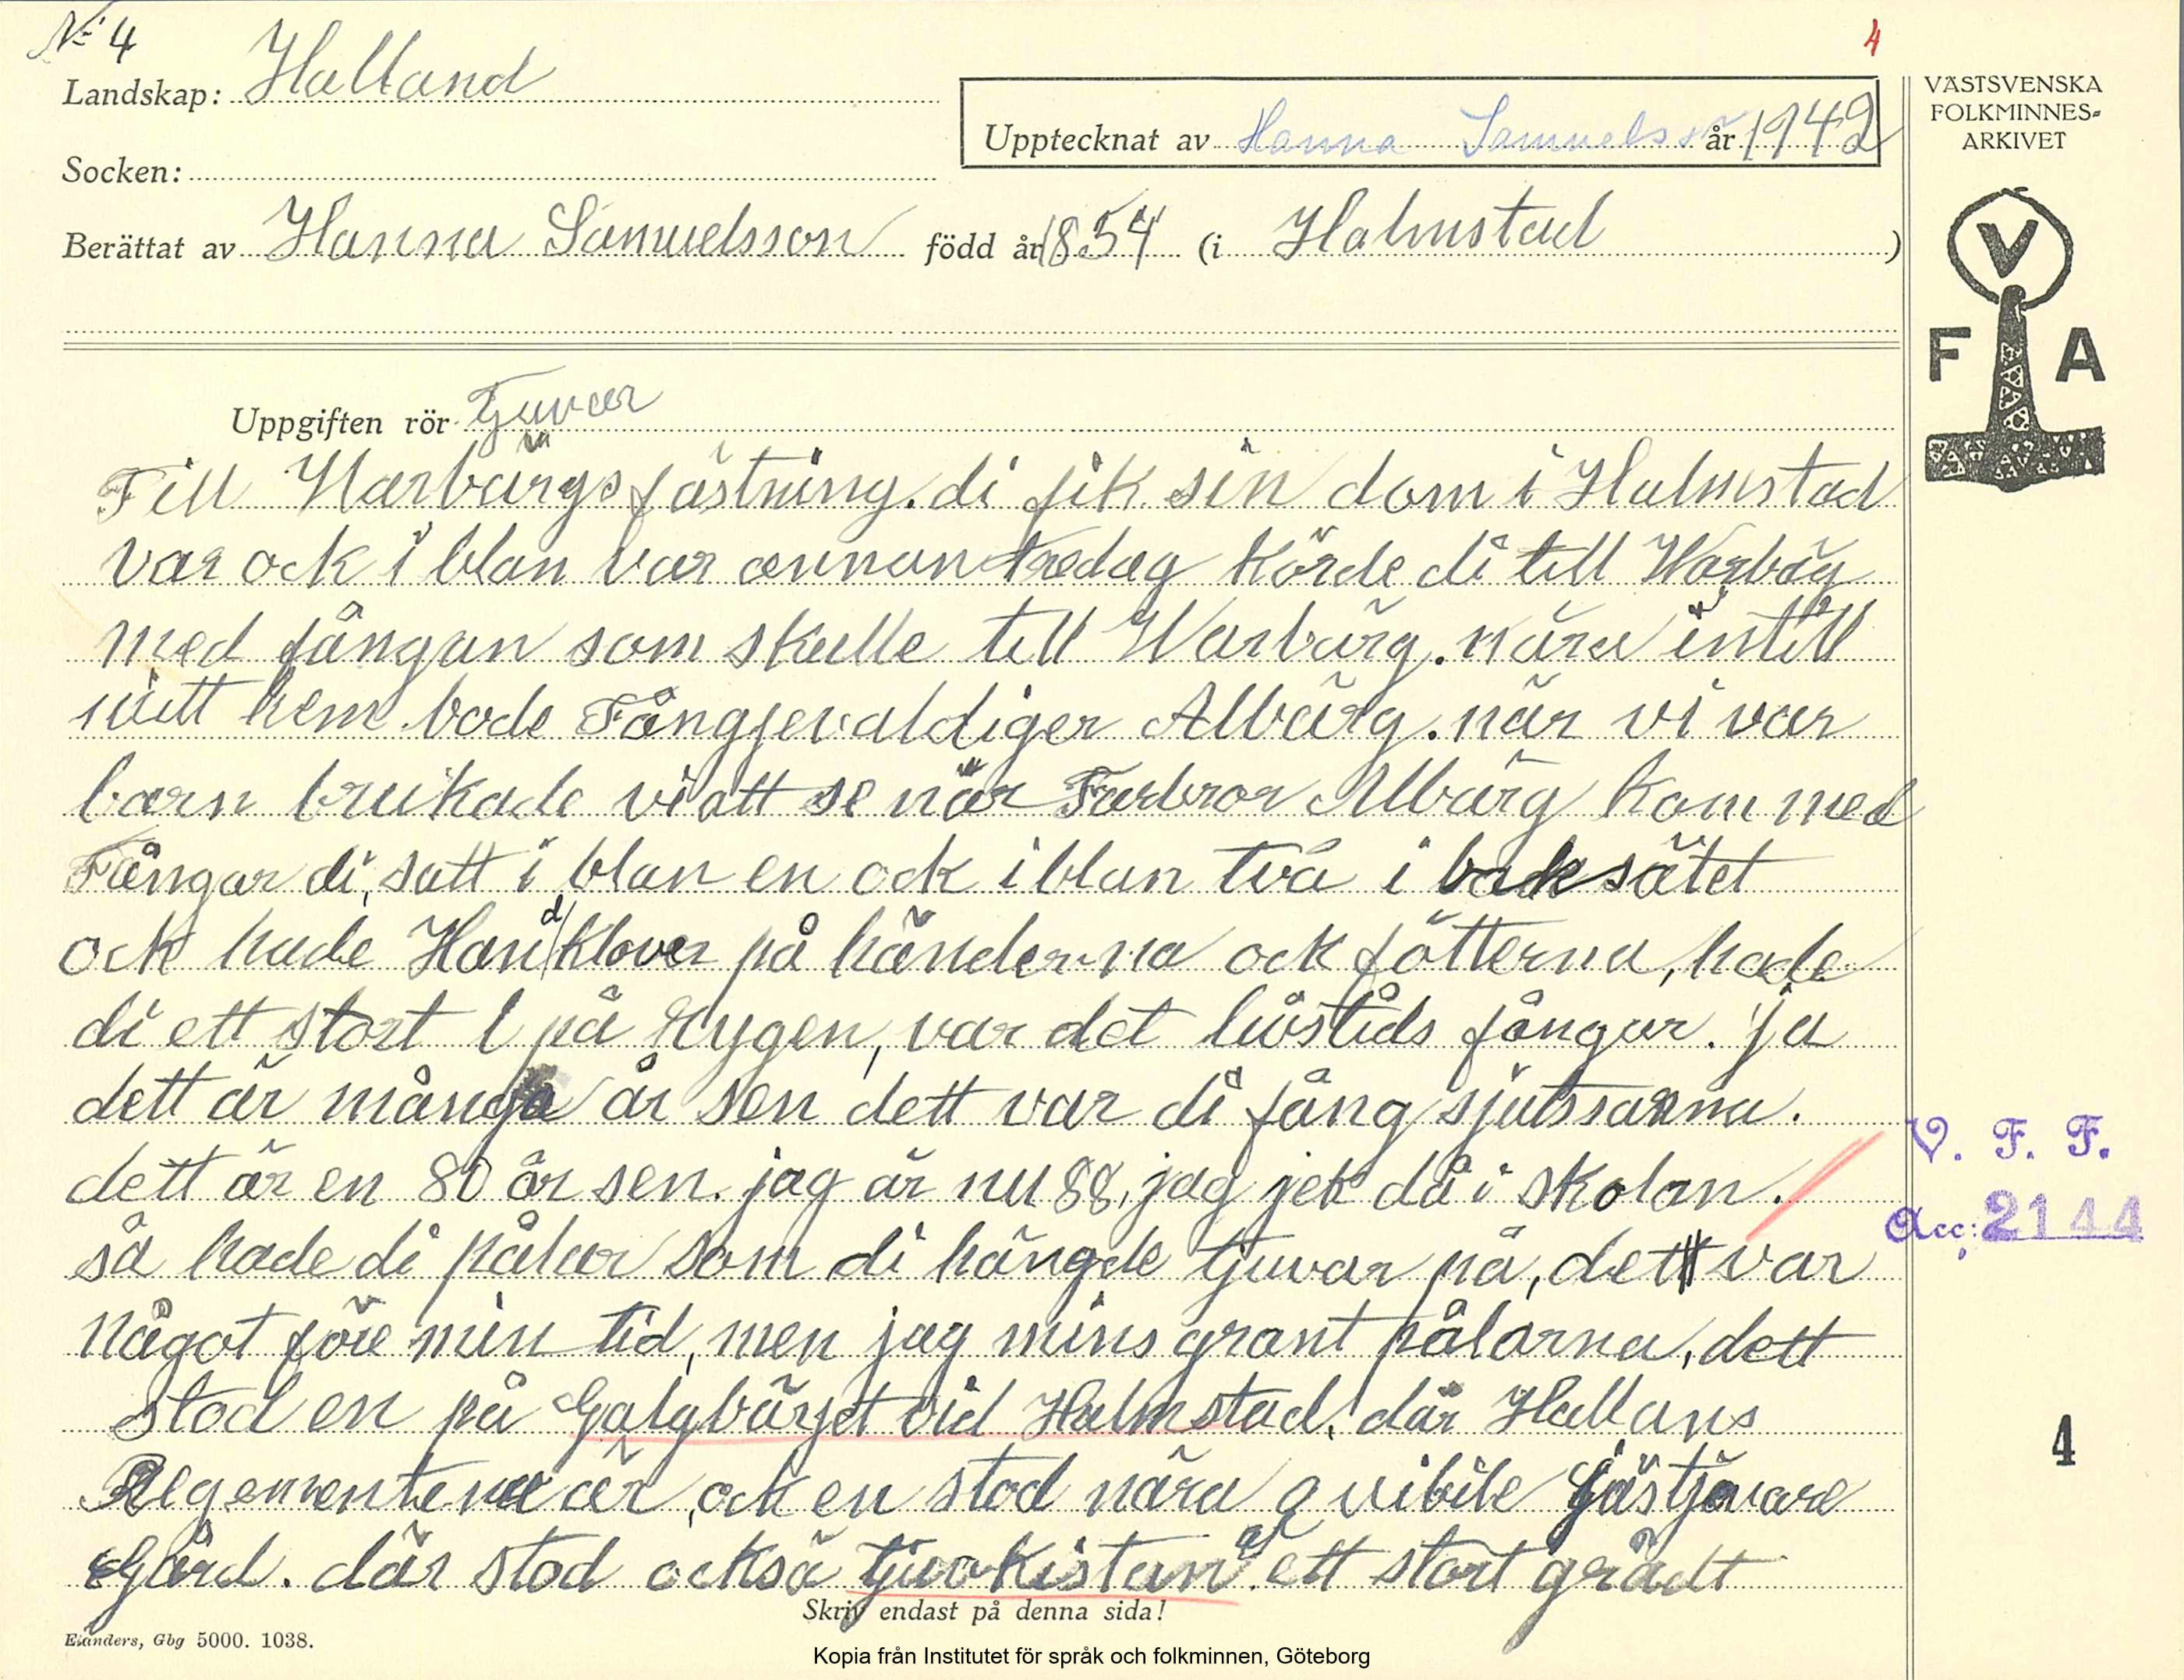 No 4
4
Landskap: Halland
VÄSTSVENSKA
FOLKMINNES=
ARKIVET
Upptecknat av Hanna Samuelsso år 1942
Socken:
Berättat av Hanna Samuelsson född år 1854 (i Halmstad)
V
F A
Uppgiften rör Tjuvar
Till Warbärgs fästning. di fik sin dom i Halmstad
var ock i blan var annan tredag körde di till Warbärg
med fångan som skulle till Warbärg. nära intill
mitt hem bode Fångjevaldiger Albärg. när vi var
barn brukade vi att se när Farbror Albärg kom med
Fångar di, satt i blan en ock i blan två i baksätet
ock hade Handklover på händerna ock fötterna, hade
di ett stort L på Rygen, var det livstids fångar. ja
dett är många år sen dett var di fång sjutssarna.
dett är en 80 år sen. jag är nu 88, jag jek då i skolan.
så hade di pålar som di hängde tjuvar på, dett var
något före min tid, men jag mins grant pålarna, dett
stod en på Galgbärjet vid Halmstad, där Hallans
Regementena är, ock en stod nära qvibile Gästjvare
Gård. där stod också tjuvkistan af ett stort grädt
V. F. F.
Acc: 2144
4
Skriv endast på denna sida!
Elanders, Gbg 5000. 1038.
Kopia från Institutet för språk och folkminnen, Göteborg